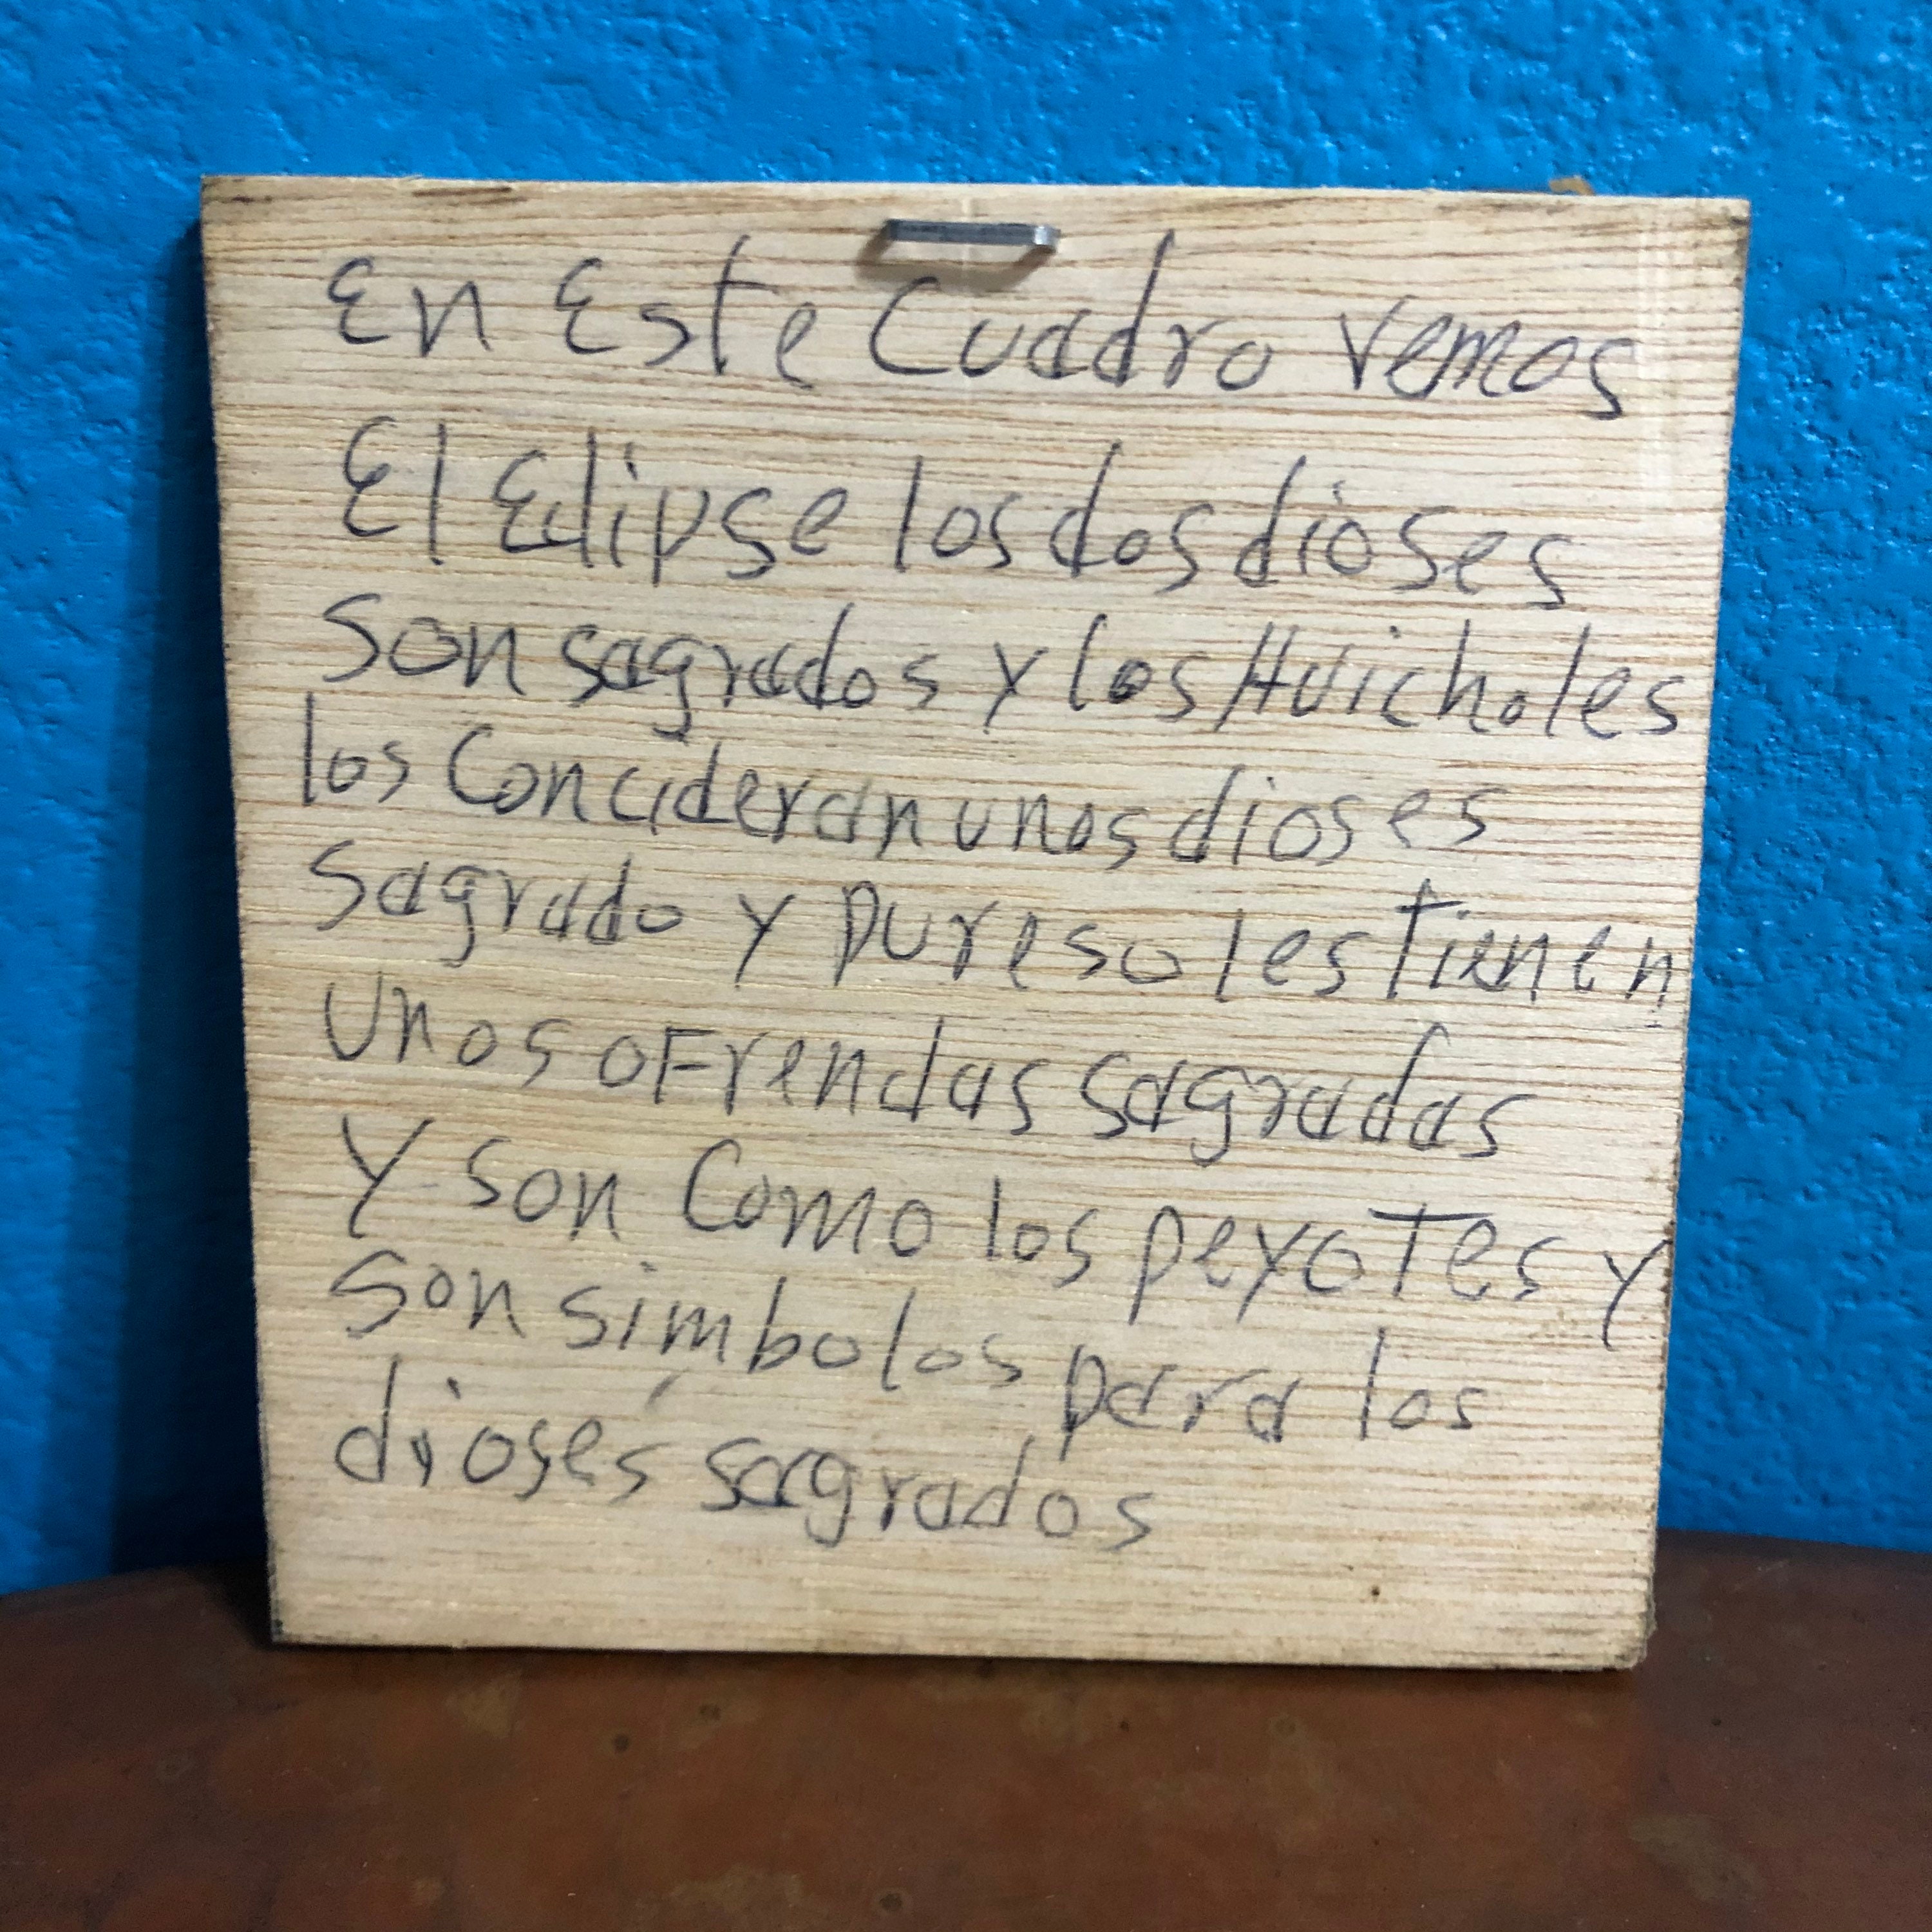 En Este Cuadro vemos
El Eclipse los dos dioses
son sagrados y los Huicholes
los Concideran unos dioses
sagrado y pur eso les tienen
unos oFrendas sagradas
Y son Como los peyotes y
son simbolos para los
dioses sagrados